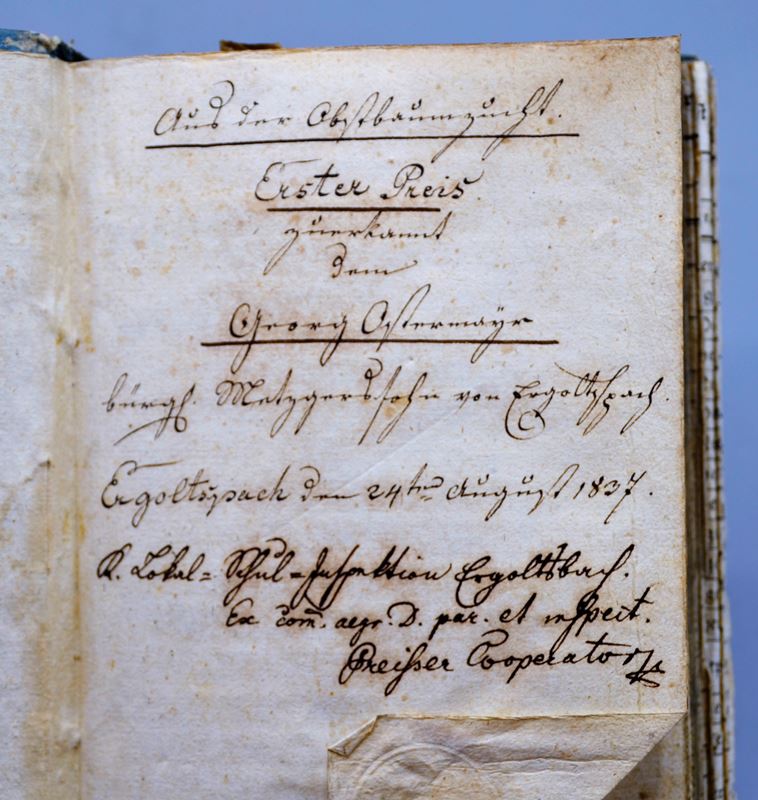 Aus der Obstbaumzucht.
Erster Preis
zuerkannt
dem
Georg Ostermayr
bürgl. Metgerssohn von Ergoltspach.
Ergoltspach den 24ten August 1837.
K. Lokal= Schul=Inspektion Ergoltsbach.
Ex com. aegr. D. par. et inspect.
Preisser Cooperator